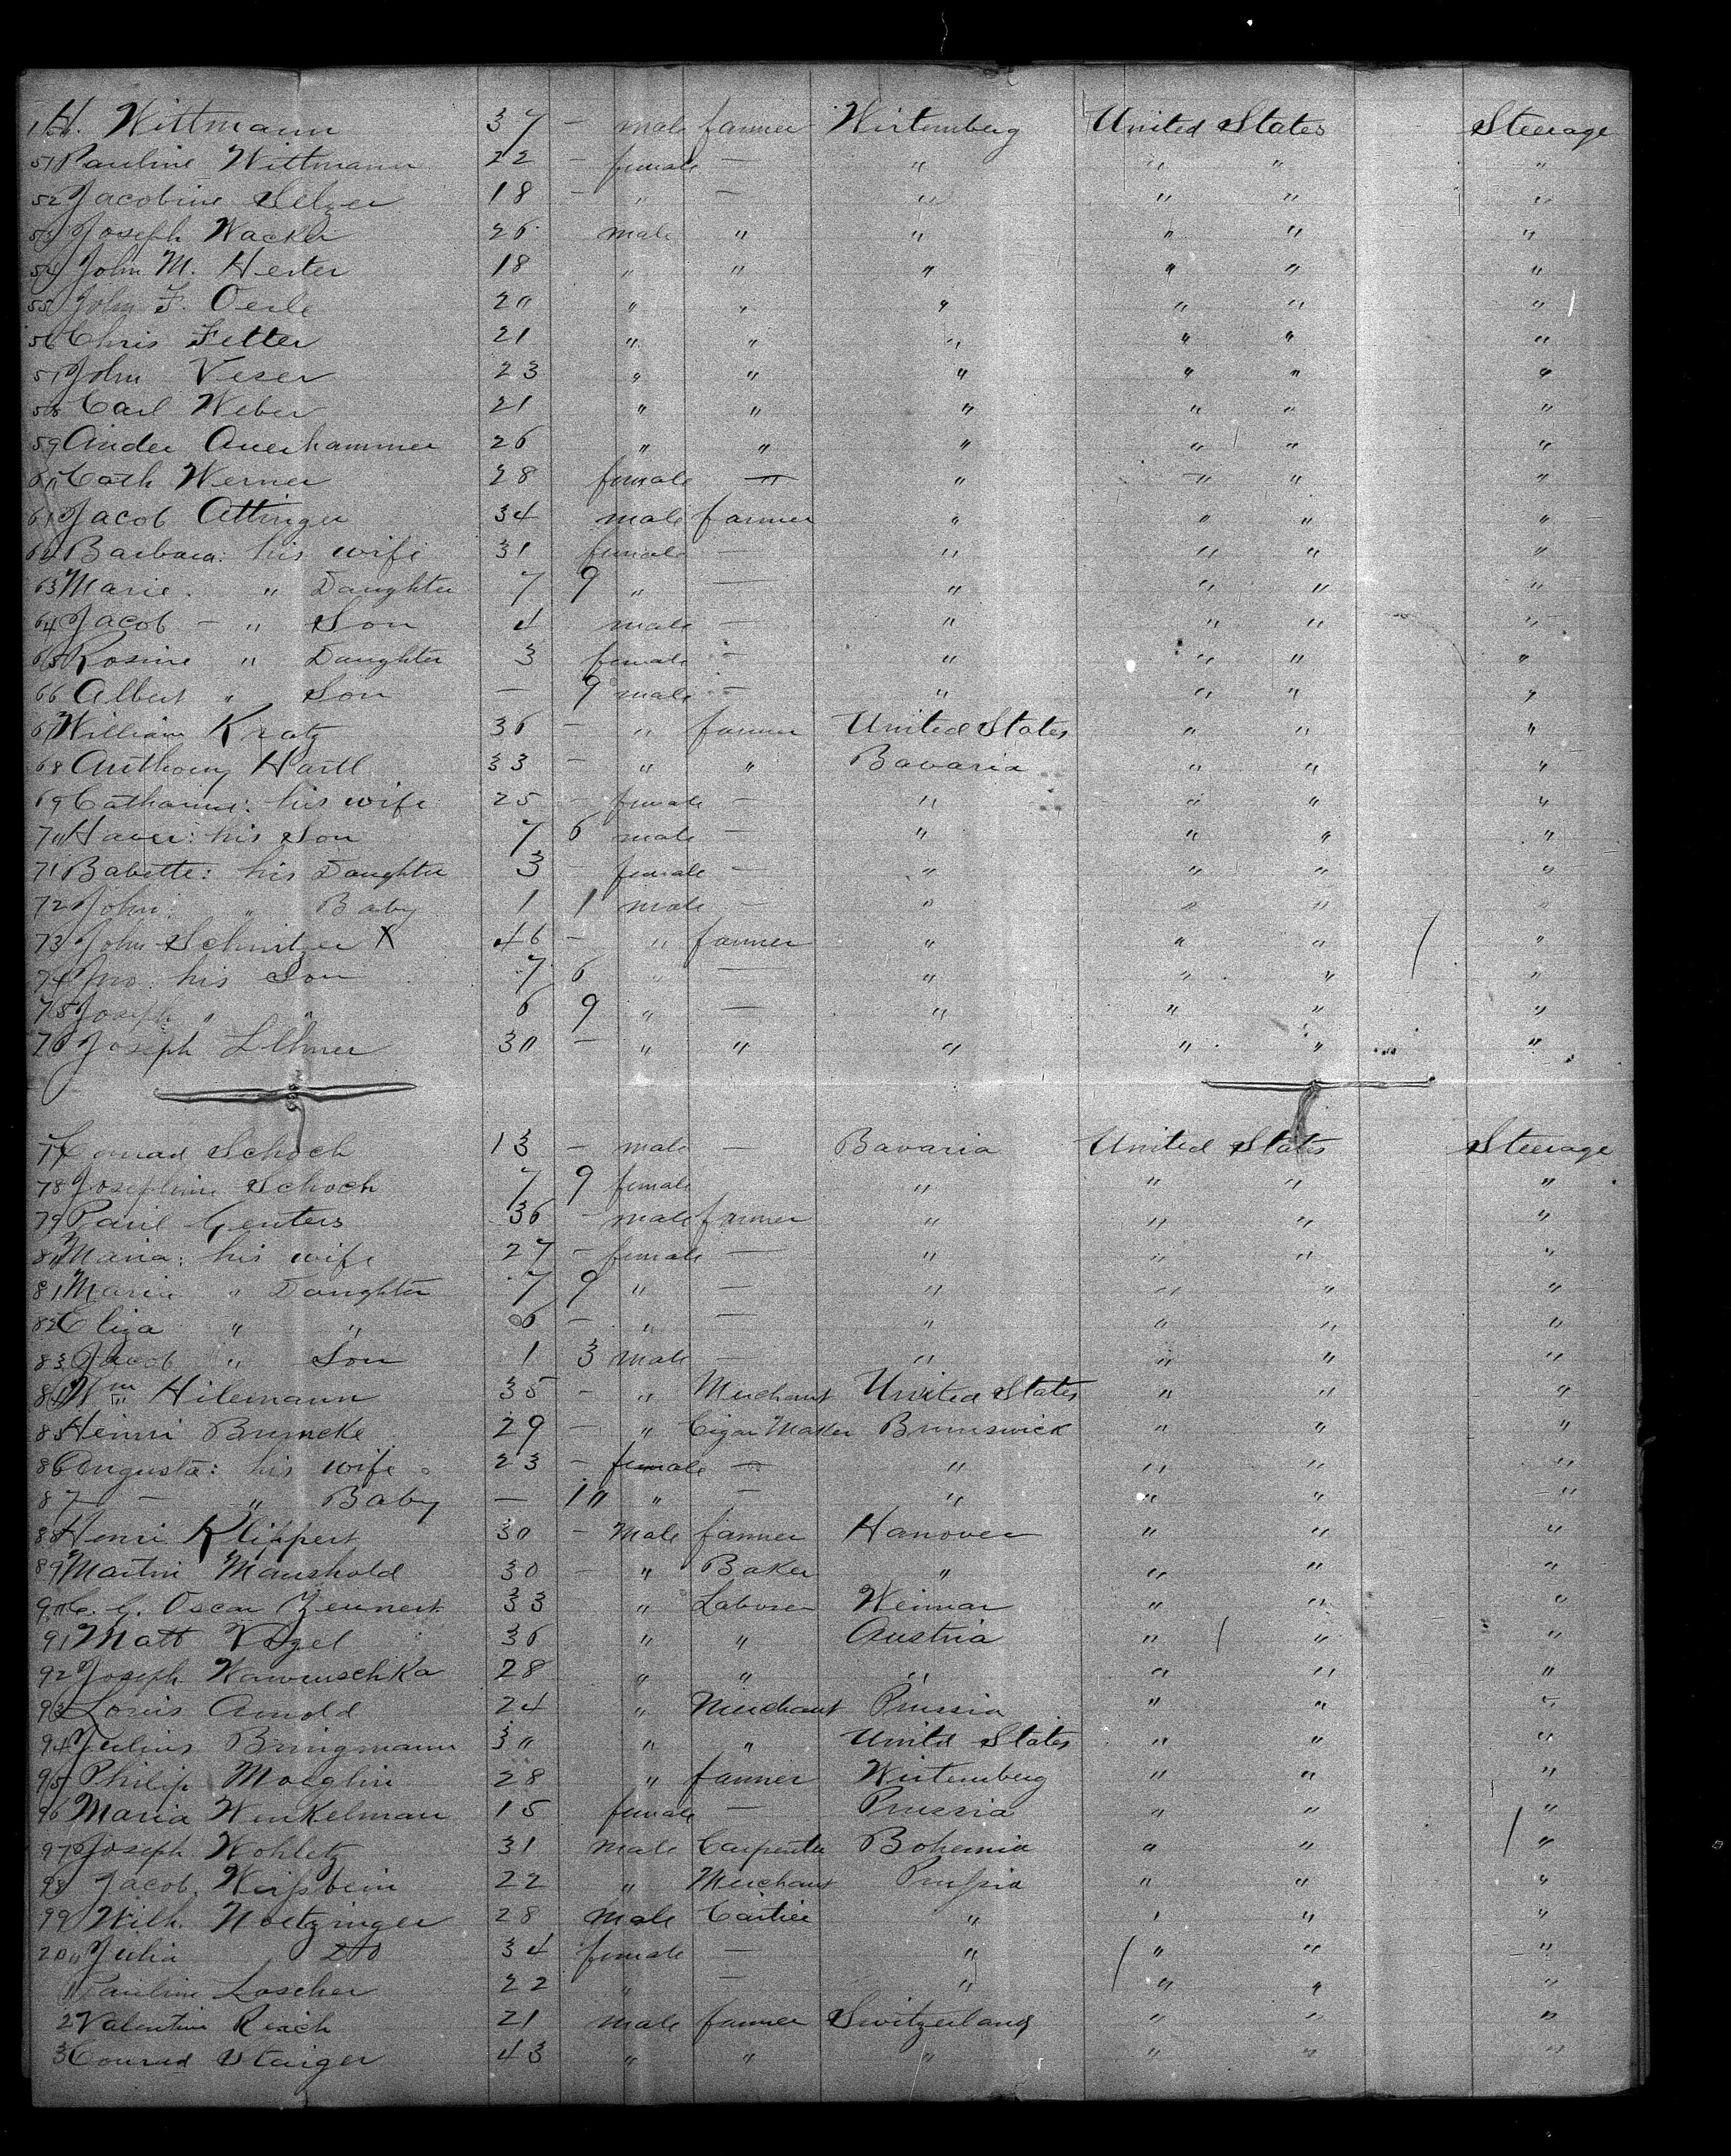 H. Wittmann 37 - male farmer Wirtemberg United States Steerage
51 Pauline Wittmann 22 - female - " " " "
52 Jacobine Selzer 18 - " - " " " "
53 Joseph Wacker 26 male " " " " "
54 John M. Herter 18 " " " " " "
55 John F. Oerle 20 " " " " " "
56 Chris Fetter 21 " " " " " "
57 John Veser 23 " " " " " "
58 Carl Weber 21 " " " " " "
59 Ander Auerhammer 26 " " " " " "
60 Cath Werner 28 female - " " " "
61 Jacob Attinger 34 male farmer " " " "
62 Barbara: his wife 31 female - " " " "
63 Marie. " Daughter 7 9 " - " " " "
64 Jacob - " Son 4 male - " " " "
65 Rosine " Daughter 3 female - " " " "
66 Albert " Son - 9 male - " " " "
67 William Kratz 36 - " farmer United States " " "
68 Anthony Hartl 33 - " " Bavaria " " "
69 Catharine: his wife 25 - female - " " " "
70 his Son 7 6 male - " " " "
71 Babette: his Daughter 3 female - " " " "
72 John: " Baby 1 1 male - " " " "
73 John Schnitzer X 46 - " farmer " " " "
74 Jno: his Son 7 6 " - " " " "
75 Joseph " " 6 9 " - " " " "
76 Joseph 30 - " " " " " "
77 Conrad Schoch 13 - male - Bavaria United States Steerage
78 Josephine Schoch 7 9 female " " " "
79 Paul Genters 36 - male farmer " " " "
80 Maria: his wife 27 - female - " " " "
81 Marie " Daughter 7 9 " - " " " "
82 Eliza " " 6 - " - " " " "
83 Jacob " Son 1 3 male - " " " "
84 Wm Hilemann 35 - " Merchant United States " " "
85 Henri Brumcke 29 - " Cigar Maker Brunswick " " "
86 Augusta: his wife 23 - female - " " " "
87 - " Baby - 10 " - " " " "
88 Henri Klippert 30 - Male farmer Hanover " " "
89 Martin Manshold 30 - " Baker " " " "
90 C. G. Oscar Zeunert 33 " Laborer Weimar " " "
91 Matt Vogel 36 " " Austria " " "
92 Joseph Wawruschka 28 " " " " " "
93 Louis Arnold 24 " Merchant Prussia " " "
94 Julius Bringmann 30 " " United States " " "
95 Philip Moeglin 28 " farmer Wirtemberg " " "
96 Maria Winkelman 15 female - Prussia " " "
97 Joseph Wohletz 31 male Carpenter Bohemia " " "
98 Jacob Weifsbein 22 " Merchant Prufsia " " "
99 Wilh. Noetzinger 28 male " " " "
200 Julia do 34 female - " " " "
1 Pauline Loscher 22 " - " " " "
2 Valentin Reich 21 male farmer Switzerland " " "
3 Conrad Staiger 43 " " " " " "